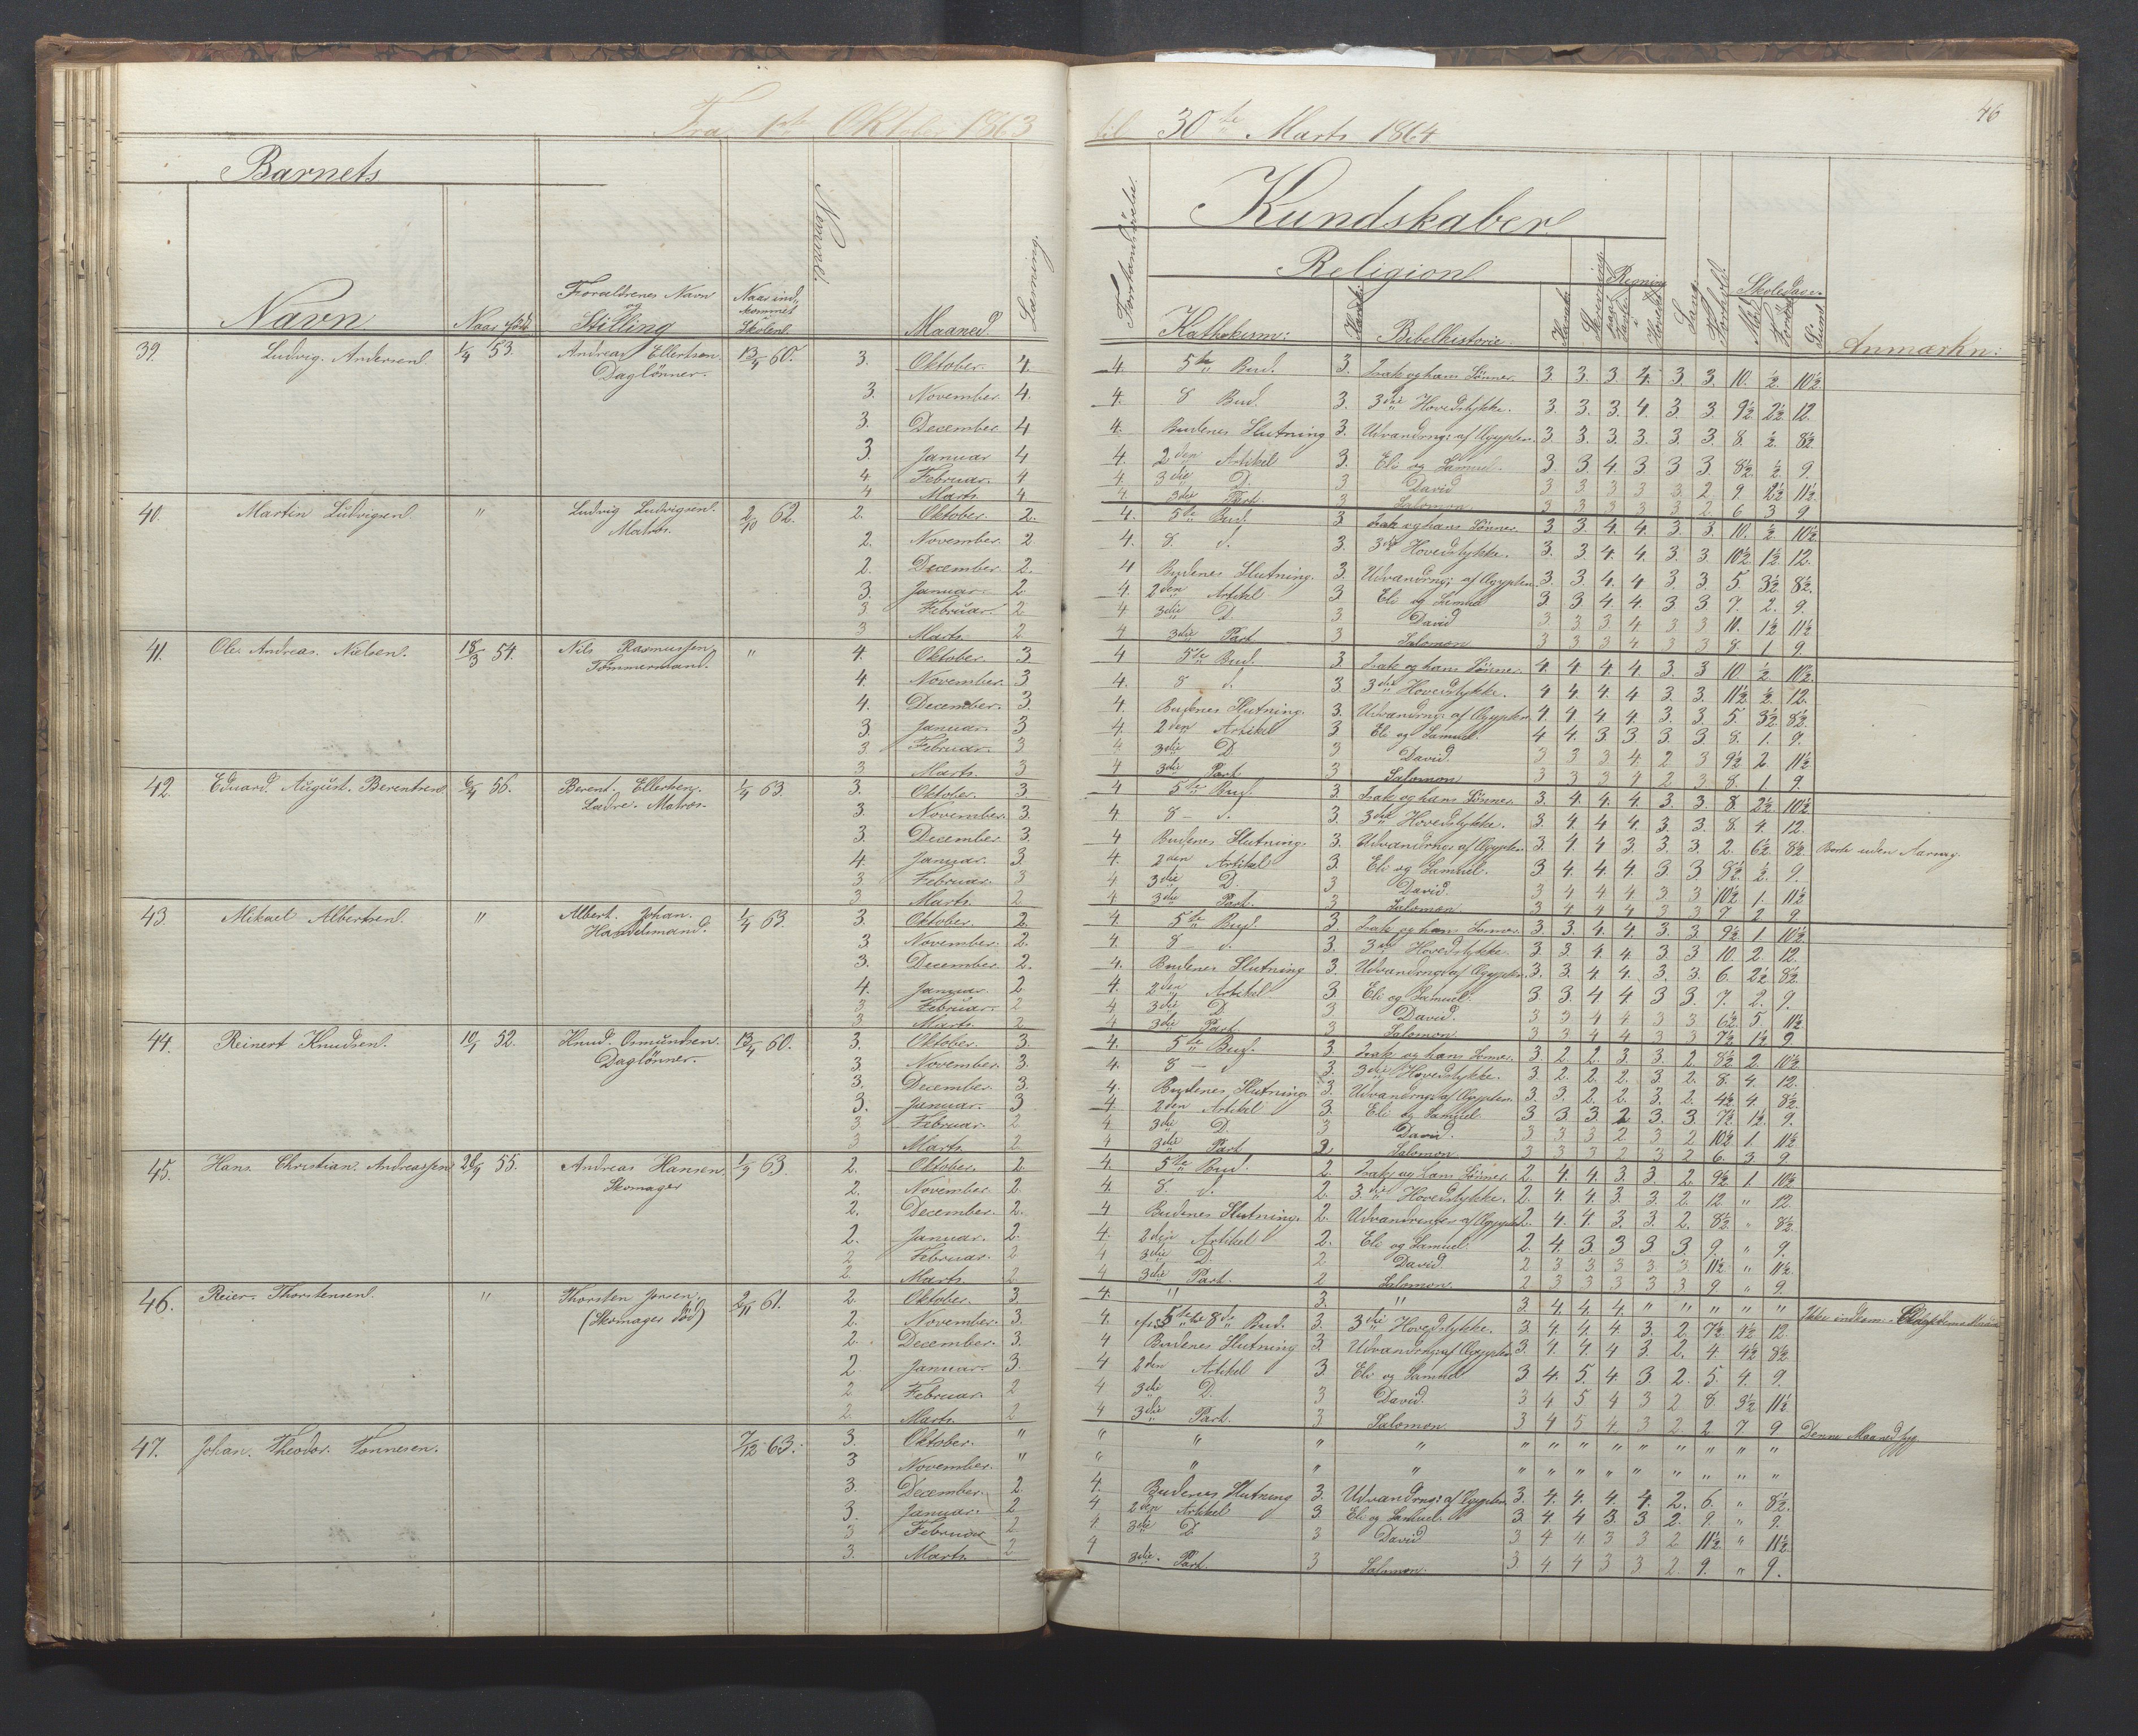 46
Fra 1ste Oktober 1863 til 30te Marts 1864.
Barnets Kundskaber
Religion Regning Skoledage.
Navn Naar født Forældrenes Navn og Stilling Naar indkommet i Skolen. Nummer. Maaned Læsning. Forstandsøvelse. Kathekism: Karakt: Bibelhistorie. Karakt. Skrivning Sang. Forhold. Mødt Anmærkn:
39. Ludvig Andersen 1/4 53. Andreas Ellertsen. Daglønner. 13/4 60. 3. Oktober. 4. 4. 5te Bud. 3. Isak og hans Sønner. 3. 3. 3. 4. 3. 3. 10. ½. 10½.
3. November. 4. 4. 8 Bud. 3. 3die Hovedstykke. 3. 3. 3. 4. 3. 3. 9½. 2½. 12.
3. December 4 4. Budenes Slutning 3. Udvandrng: af Ægypten. 3. 3. 3. 3. 3. 3. 8. ½. 8½.
3. Januar 4 4. 2den Artikel 3. Eli og Samuel. 3. 3. 4. 3 3 3 8½. ½. 9.
4. Februar. 4 4. 3die D. 3 David 3 3 3 3 3 2 9. 2½ 11½.
4 Marts. 4 4. 3die Part. 3 Salomon 3 3 3 3 3. 2. 6 3 9
40. Martin Ludvigsen. " Ludvig Ludvigsen. Matros. 2/10 62. 2. Oktober. 2. 4. 5te Bud. 3 Isak og hans Sønner. 3 3 4 4. 3. 3. 10. ½ 10½
2. November. 2 4. 8. d. 3. 3die Hovedstykke. 3. 3 4. 4. 3. 3 10½. 1½. 12.
2. December. 2. 4 Budenes Slutning. 3. Udvandrng: af Ægypten. 3. 3. 4. 4 3. 3. 5. 3½ 8½.
3. Januar. 2 4. 2den Artikel 3. Eli og Samuel 3. 3 4. 4. 3 3 7. 2. 9.
3. Februar. 2 4 3die D. 3. David 3 3. 3 4 3 3 10. 1½ 11½
3 Marts. 2 4 3die Part 3 Salomon 3 3 3 4 3 3 8. 1 9.
41. Ole Andreas Nielsen. 18/3 54. Nils Rasmussen, Tømmermand. " 4. Oktober. 3 4 5te Bud. 3. Isak og hans Sønner. 4. 4. 4. 4. 3. 3 10 ½ 10½.
4. November. 3 4. 8 d. 3. 3die Hovedstykke. 4 4. 4. 4 3. 3. 11½ ½ 12.
4. December. 3. 4. Budenes Slutning. 3. Udvandrng: af Ægypten 4. 4. 4. 4. 3. 3. 5. 3½ 8½.
3. Januar 3 4. 2den Artikel 3. Eli og Samuel. 4 4. 3 3 3 3. 8. 1. 9.
3 Februar. 3 4 3die D 3 David. 3 3 3 4 2 3 9½ 2 11½
3 Marts. 3 4 3die Part 3 Salomon 3 3 3 4 2 3 8. 1 9.
42. Eduard August Berentsen 6/4 56. Berent Ellertsen. Matros. 1/4 63. 3. Oktober. 3 4 5te Bud. 3. Isak og hans Sønner. 3. 4. 4. 4. 3. 3. 8. 2½. 10½.
3. November. 3. 4. 8 — d. 3 3die Hovedstykke. 3 4. 4 4. 3. 3. 8. 4. 12.
3. December 3. 4 Budenes Slutning. 3. Udvandrng: af Ægypten 3. 4. 4 3 3. 3. 2. 6½. 8½. Borte uden Aarsag.
4. Januar. 3. 4. 2den Artikel 3. Eli og Samuel. 3. 4. 4. 4. 3 3. 8½. ½. 9.
3. Februar. 3 4 3die D. 3 David. 3 4 4 4 3 3 10½ 1. 11½
3 Marts. 2 4 3die Part. 3 Salomon. 3 4 4 4 3 3 7 2 9.
43. Mikael Albertsen. " Albert Johan. Handelsmand. 1/4 63. 3. Oktober. 2. 4. 5te Bud. 3. Isak og hans Sønner. 3. 3. 4. 4. 3. 3. 9½. 1. 10½.
3 November. 2. 4. 8 — d. 3. 3die Hovedstykke. 3. 3. 4. 4. 3. 3 10. 2. 12.
3. December. 2. 4. Budenes Slutning 3. Udvandrng: af Ægypten. 3. 3. 4 4. 3. 3 6. 2½ 8½.
4. Januar. 2 4. 2den Artikel 3. Eli og Samuel. 3. 3. 4. 4 3 3. 7. 2. 9.
3 Februar. 2 4 3die D 3 David. 3 3 4 4 3 3. 6½. 5. 11½
3 Marts. 2 4 3die Part. 3 Salomon 3 3 4 4 3 3 7½ 1½ 9
44. Reinert Knudsen. 10/1 52. Knud Osmundsen. Daglønner. 13/4 60. 3. Oktober. 3 4. 5te Bud. 3. Isak og hans Sønner. 3. 2. 2. 3. 3. 2. 8½. 2. 10½.
3. November. 3. 4. 8 — d 3. 3die Hovedstykke. 3 2. 2. 2. 3 2. 8. 4. 12.
3. December. 3. 4. Budenes Slutning. 3. Udvandrng: af Ægypten. 3 3. 2. 2. 3. 2. 4½ 4. 8½.
3. Januar. 3 4. 2den Artikel 3. Eli og Samuel 3 3. 3 2 3. 3. 7½. 1½. 9.
3. Februar. 2 4 3die D. 3 David. 3 3 3 2 3 2 10½ 1. 11½
3 Marts. 2 4 3die Part 2 Salomon. 3 3 3 2 3 2 6. 3 9
45. Hans Christian Andreassen 26/9 55. Andreas Hansen, Skomager 1/4 63. 2. Oktober. 2. 4. 5te Bud. 2. Isak og hans Sønner. 2. 4. 4. 3. 3. 2. 9½. 1. 10½
2. November. 2 4. 8. d. 2. 3die Hovedstykke. 2. 4. 4. 3. 3. 2. 12 " 12.
2. December. 2. 4 Budenes Slutning. 2. Udvandrng: af Ægypten 2. 4. 4. 3. 3. 2. 8½. " 8½.
2. Januar. 2. 4. 2den Artikel 2. Eli og Samuel. 2. 4. 3. 3 3. 3. 9. " 9.
2 Februar. 2 4 3die D. 2 David. 2 3 3 3 3 3 11½ " 11½.
2. Marts. 2 4 3die Part. 2 Salomon. 2 3 3 3 3 3 9 " 9.
46. Reier Thorstensen. " Thorsten Jonsen. (Skomager død) 2/11 61. 2. Oktober. 3 4. " 3. " 3 4. 4. 4. " " " " " Ikke indkom:
2. November. 3. 4. 5te til 8de Bud. 3. 3die Hovedstykke. 3. 4. 4. 4 3. 2. 7½. 4½ 12.
2. December. 3. 4 Budenes Slutning 3. Udvandrng: af Ægypten 3. 4. 4. 4 3. 2. 4. 4½ 8½
2 Januar. 3 4 2den Artikel 3. Eli og Samuel 3 4. 5. 4. 3 2. 5. 4. 9.
2 Februar. 2 4 3die D. 3 David. 3 4 5 4 3 2 8. 3½ 11½.
2. Marts. 2 4 3die Part. 3 Salomon 3 4 5 4 3 2. 2 7 9 Denne Maaned syg.
47. Johan Theodor Tønnesen. 7/12 63. 3. Oktober. " " " " " " " " " " " " " "
3 November. " " " " " " " " " " " " " "
3. December. 2 4. Budenes Slutning 3. Udvandrng: af Ægypten. 3. 4. 4. 4. 4. 2. 6. " 8½.
3. Januar. 2 4 2den Artikel 3. Eli og Samuel. 3. 4. 4 3 3. 2. 9. " 9.
3 Februar 2 4 3die D 3 David 3 4 4 3 3 2 11½ " 11½.
3. Marts. 2 4 3die Part. 3 Salomon. 3 4 4 3 3 2. 9. " 9.